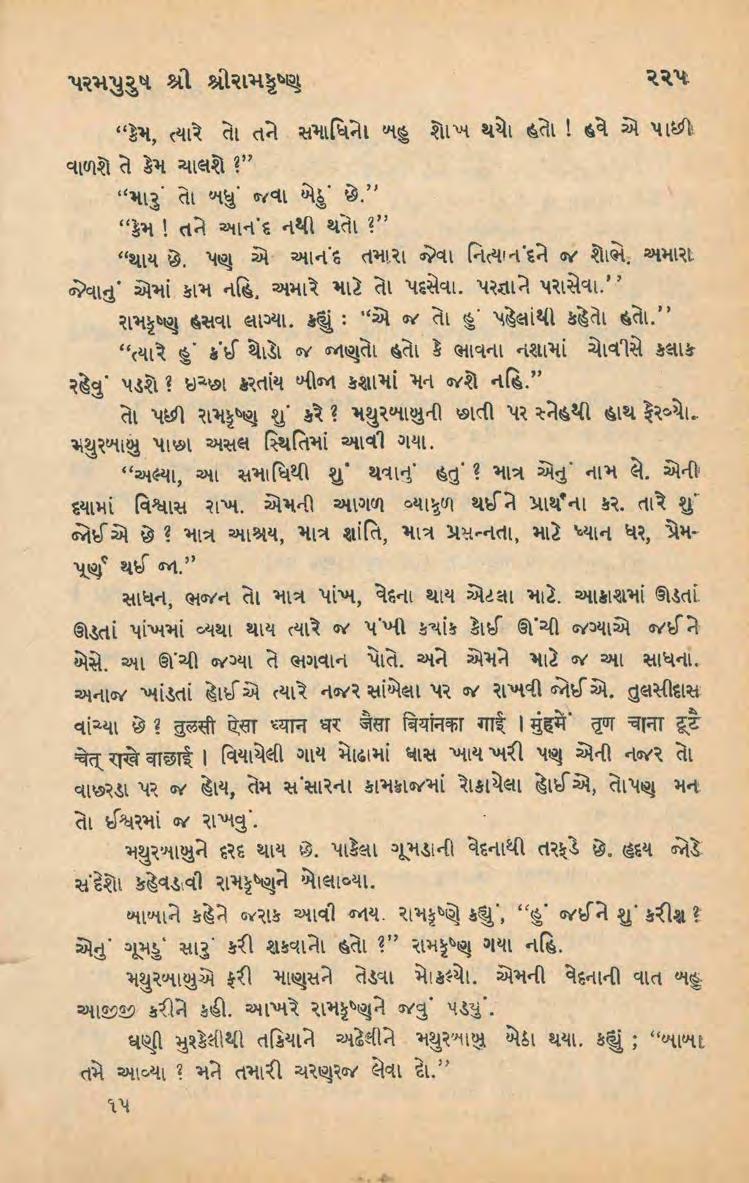 પરમપુરુષ શ્રી શ્રીરામકૃષ્ણ ૨૨૫
“કેમ, ત્યારે તો તને સમાધિનો બહુ શોખ થયો હતો ! હવે એ પાછી
વાળશે તે કેમ ચાલશે ?”
“મારું તો બધું જવા બેઠું છે.”
“કેમ ! તને આનંદ નથી થતો ?”
“થાય છે. પણ એ આનંદ તમારા જેવા નિત્યાનંદને જ શોભે. અમારા
જેવાનું એમાં કામ નહિ. અમારે માટે તો પદસેવા. પરજ્ઞાને પરાસેવા.”
રામકૃષ્ણ હસવા લાગ્યા. કહ્યું : “એ જ તો હું પહેલાંથી કહેતો હતો.”
“ત્યારે હું કંઈ થોડો જ જાણતો હતો કે ભાવના નશામાં ચોવીસે કલાક
રહેવું પડશે ? ઇચ્છા કરતાંય બીજા કશામાં મન જશે નહિ.”
તો પછી રામકૃષ્ણ શું કરે ? મથુરબાબુની છાતી પર સ્નેહથી હાથ ફેરવ્યો.
મથુરબાબુ પાછા અસલ સ્થિતિમાં આવી ગયા.
“અલ્યા, આ સમાધિથી શું થવાનું હતું ? માત્ર એનું નામ લે. એની
દયામાં વિશ્વાસ રાખ. એમની આગળ વ્યાકુળ થઈને પ્રાર્થના કર. તારે શું
જોઈએ છે ? માત્ર આશ્રય, માત્ર શાંતિ, માત્ર પ્રસન્નતા, માટે ધ્યાન ધર, પ્રેમ-
પૂર્ણ થઈ જા.”
સાધન, ભજન તો માત્ર પાંખ, વેદના થાય એટલા માટે. આકાશમાં ઊડતાં
ઊડતાં પાંખમાં વ્યથા થાય ત્યારે જ પંખી કયાંક કોઈ ઊંચી જગ્યાએ જઈને
બેસે. આ ઊંચી જગ્યા તે ભગવાન પોતે. અને એમને માટે જ આ સાધના.
અનાજ ખાંડતાં હોઈએ ત્યારે નજર સાંબેલા પર જ રાખવી જોઈએ. તુલસીદાસ
વાંચ્યા છે ? तुलसी ऐसा ध्यान धर जैसा बियांनका गाई । मुंहमें तृण चाना टूटै
चेत् राखे वाछाई । વિયાયેલી ગાય મોઢામાં ઘાસ ખાય ખરી પણ એની નજર તો
વાછરડા પર જ હોય, તેમ સંસારના કામકાજમાં રોકાયેલા હોઈએ, તોપણ મન
તો ઈશ્વરમાં જ રાખવું.
મથુરબાબુને દરદ થાય છે. પાકેલા ગૂમડાની વેદનાથી તરફડે છે. હૃદય જોડે
સંદેશો કહેવડાવી રામકૃષ્ણને બોલાવ્યા.
બાબાને કહેને જરાક આવી જાય. રામકૃષ્ણે કહ્યું, “હું જઈને શું કરીશ ?
એનું ગૂમડું સારું કરી શકવાનો હતો ?” રામકૃષ્ણ ગયા નહિ.
મથુરબાબુએ ફરી માણસને તેડવા મોકલ્યો. એમની વેદનાની વાત બહુ
આજીજી કરીને કહી. આખરે રામકૃષ્ણને જવું પડયું.
ઘણી મુશ્કેલીથી તકિયાને અઢેલીને મથુરબાબુ બેઠા થયા. કહ્યું ; “બાબા
તમે આવ્યા ? મને તમારી ચરણરજ લેવા દો.”
૧૫